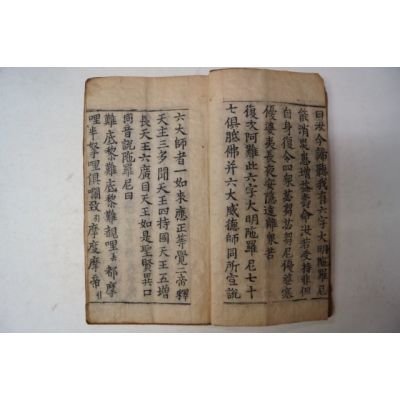 曰汝今諦聽我有六字大明陀羅尼
能消災患增益壽命汝若受持非但
自身復令四衆苾芻苾芻尼優婆塞
優婆夷長夜安隱遠離衆苦
復次阿難此六字大明陀羅尼七十
七俱胝佛并六大威德師同所宣說
六大師者一如來應正等覺二帝釋
天主三多聞天王四持國天王五增
長天王六廣目天王如是聖賢異口
同音說陀羅尼曰
難底黎難底黎難覩哩都摩
哩半拏哩俱嚂致引摩度摩帝引